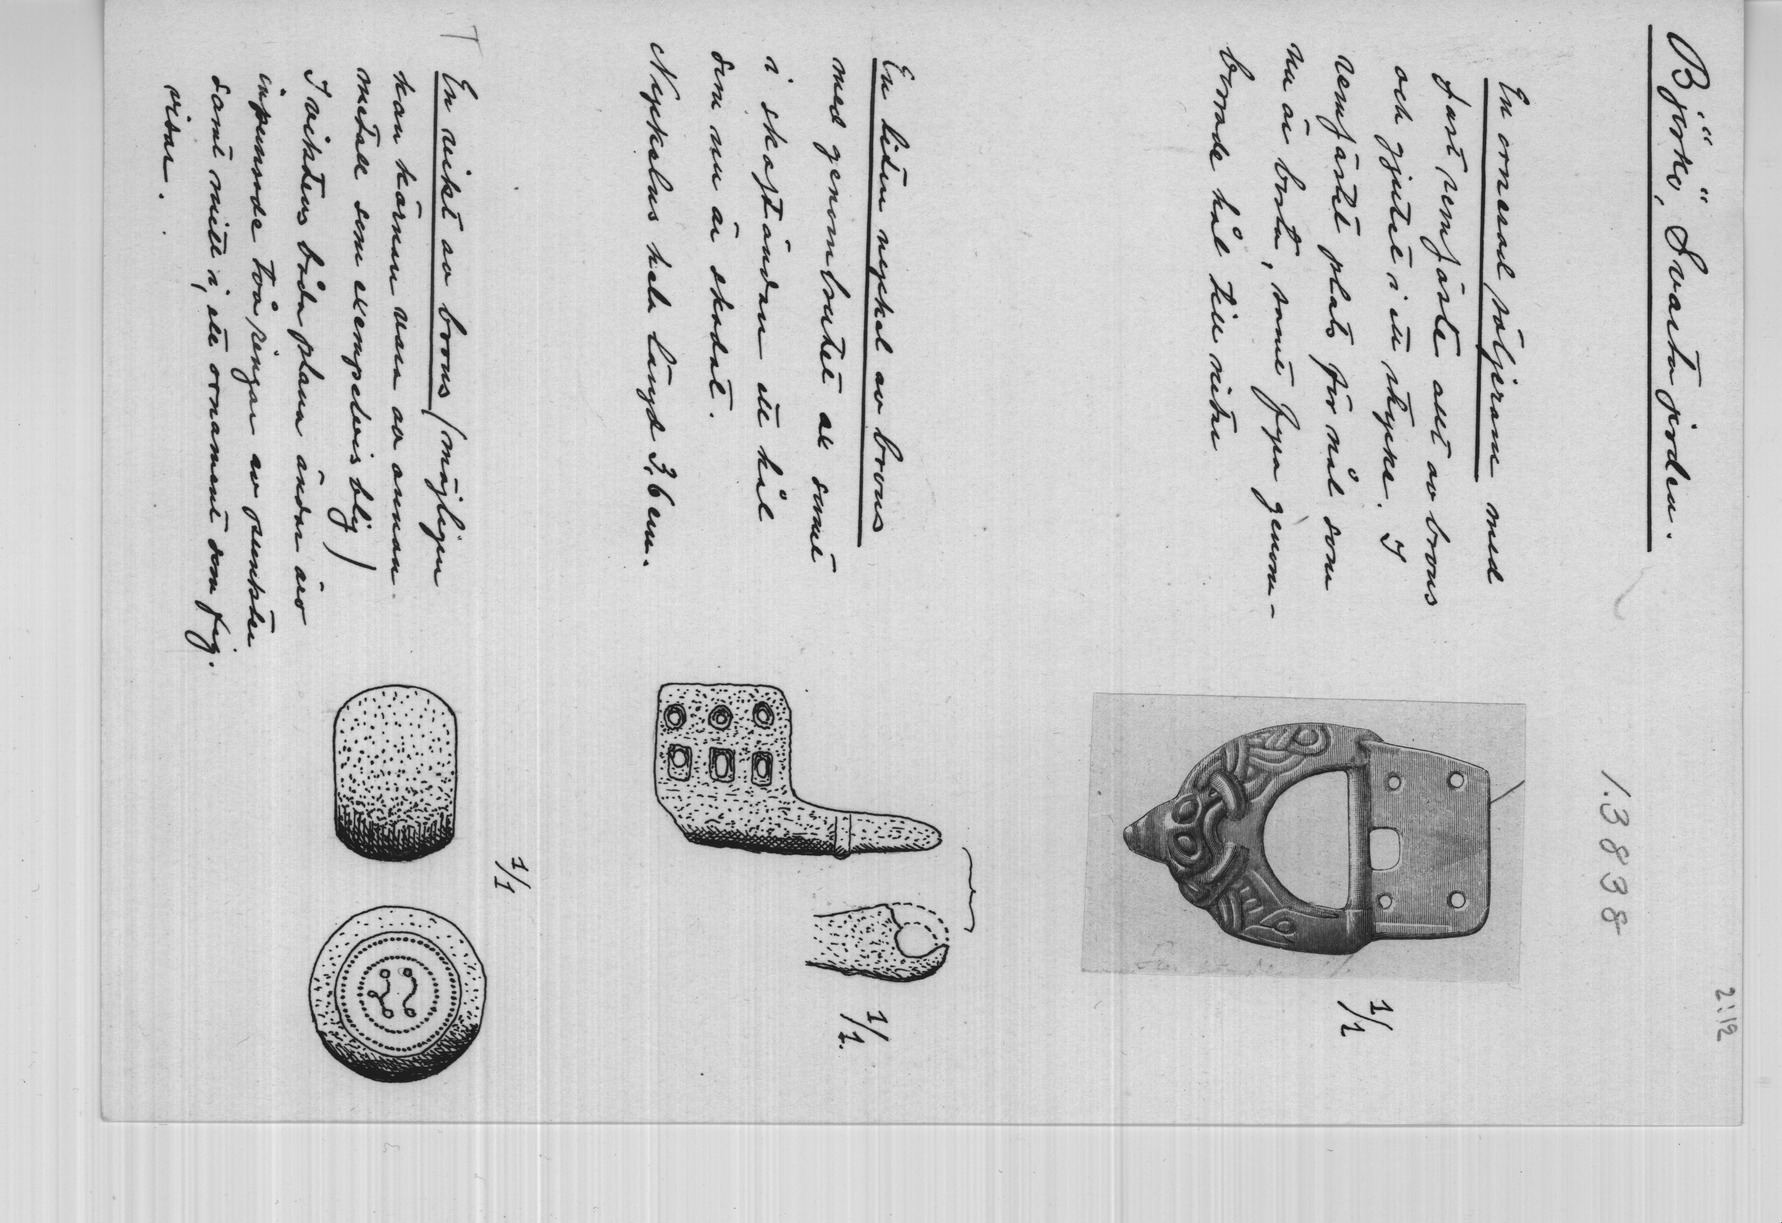 2:12
Björkö, Svarta jorden.
13838
En ornerad söljeram med
fast remfäste allt av brons
och gjutet i ett stycke. I
remfästet plats för nål som
nu är borta, samt fyra genom-
borrade hål till nitar
1/1
En liten nyckel av brons
med genombrutet ax samt
i skaftändan ett hål
som nu är skadat.
Nyckelns hela längd 3,6 cm.
1/1.
En vikt av brons (möjligen
kan kärnan vara av annan
metall som exempelvis bly)
I viktens båda plana ändar äro
inpunsade två ringar av punkter
samt mitt i, ett ornament som fig.
visar.
1/1